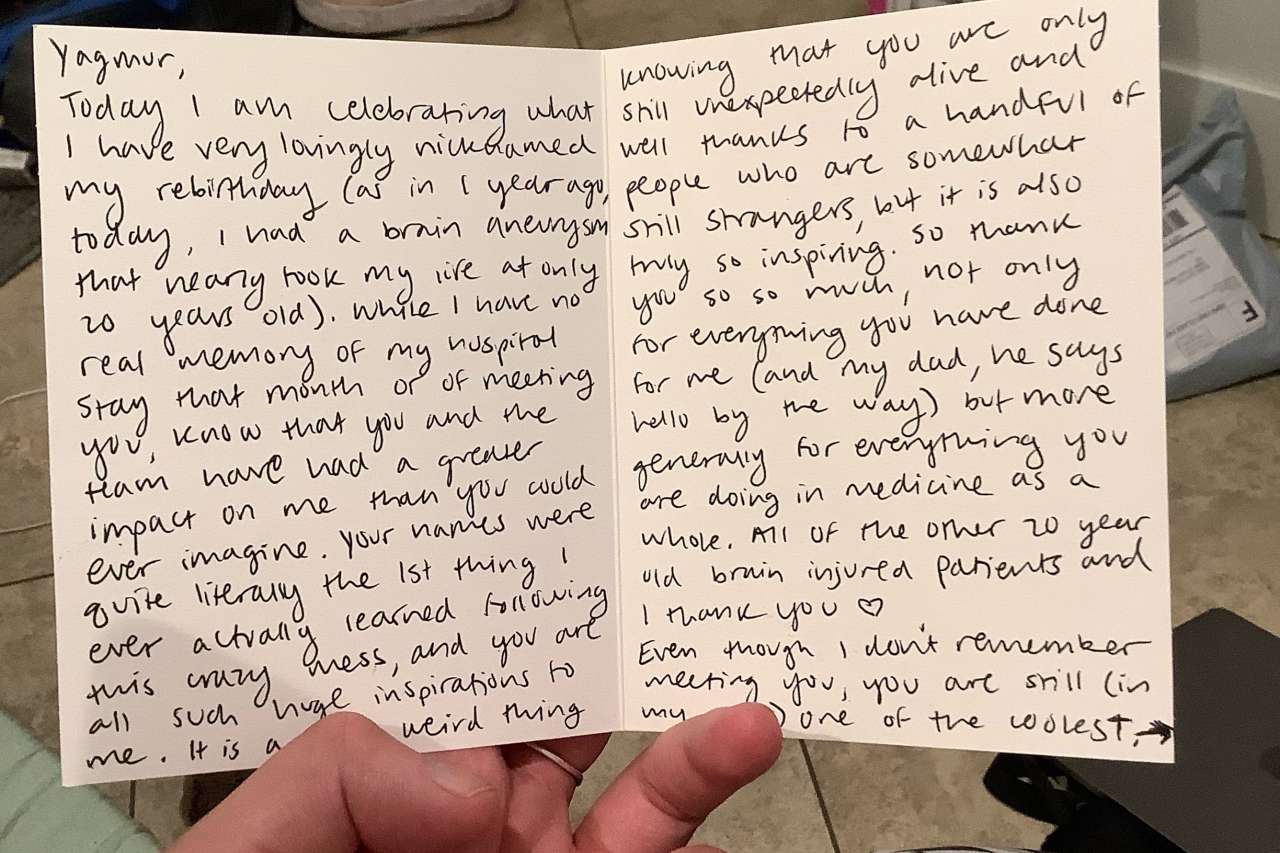 Yagmur,
Today I am celebrating what
I have very lovingly nicknamed
my rebirthday (as in 1 year ago,
today, I had a brain aneurysm
that nearly took my life at only
20 years old). While I have no
real memory of my hospital
stay that month or of meeting
you, know that you and the
team have had a greater
impact on me than you could
ever imagine. Your names were
quite literally the 1st thing I
ever actually learned following
this crazy mess, and you are
all such huge inspirations to
me. It is a weird thing
knowing that you are only
still unexpectedly alive and
well thanks to a handful of
people who are somewhat
still strangers, but it is also
truly so inspiring. So thank
you so so much, not only
for everything you have done
for me (and my dad, he says
hello by the way) but more
generally for everything you
are doing in medicine as a
whole. All of the other 20 year
old brain injured patients and
I thank you ♡
Even though I don't remember
meeting you, you are still (in
my ) one of the coolest, →